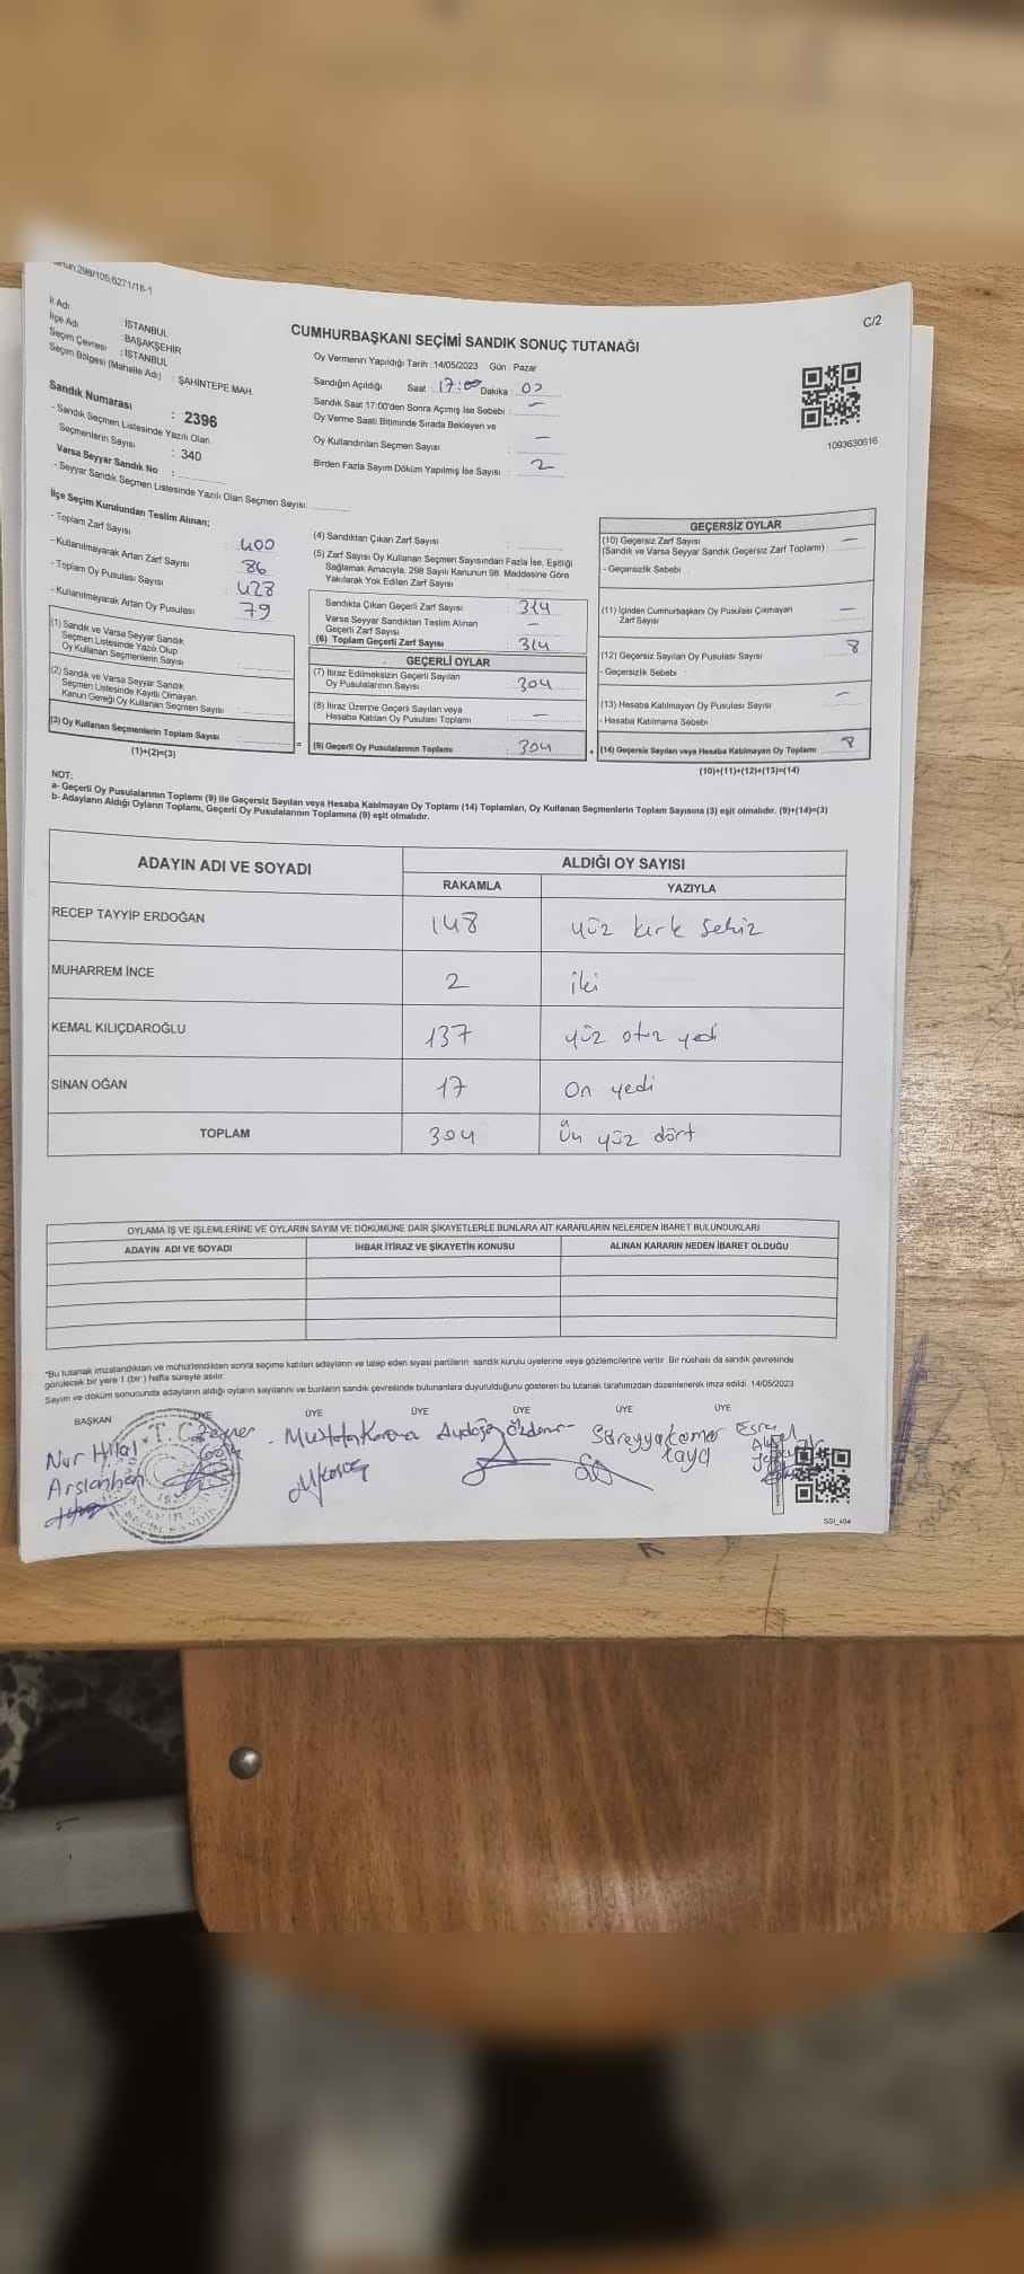 298/105,6271/16-1
C/2
İl Adı : İSTANBUL
İlçe Adı : BAŞAKŞEHİR
Seçim Çevresi : İSTANBUL
Seçim Bölgesi (Mahalle Adı) : ŞAHİNTEPE MAH.
Sandık Numarası : 2396
- Sandık Seçmen Listesinde Yazılı Olan
Seçmenlerin Sayısı : 340
Varsa Seyyar Sandık No :
- Seyyar Sandık Seçmen Listesinde Yazılı Olan Seçmen Sayısı:
CUMHURBAŞKANI SEÇİMİ SANDIK SONUÇ TUTANAĞI
Oy Vermenin Yapıldığı Tarih :14/05/2023 Gün : Pazar
Sandığın Açıldığı Saat : 17:00 Dakika :
Sandık Saat 17:00'den Sonra Açımış İse Sebebi : –
Oy Verme Saati Bitiminde Sırada Bekleyen ve
Oy Kullandırılan Seçmen Sayısı –
Birden Fazla Sayım Döküm Yapılmış İse Sayısı : 2
1093630616
İlçe Seçim Kurulundan Teslim Alınan;
- Toplam Zarf Sayısı : 400
- Kullanılmayarak Artan Zarf Sayısı 86
- Toplam Oy Pusulası Sayısı : 428
- Kullanılmayarak Artan Oy Pusulası 79
(1) Sandık ve Varsa Seyyar Sandık
Seçmen Listesinde Yazılı Olup
Oy Kullanan Seçmenlerin Sayısı
(2) Sandık ve Varsa Seyyar Sandık
Seçmen Listesinde Kayıtlı Olmayan
Kanun Gereği Oy Kullanan Seçmen Sayısı
(3) Oy Kullanan Seçmenlerin Toplam Sayısı
(1)+(2)=(3)
(4) Sandıktan Çıkan Zarf Sayısı
(5) Zarf Sayısı Oy Kullanan Seçmen Sayısından Fazla İse, Eşitliği
Sağlamak Amacıyla, 298 Sayılı Kanunun 98. Maddesine Göre
Yakılarak Yok Edilen Zarf Sayısı
Sandıkta Çıkan Geçerli Zarf Sayısı 314
Varsa Seyyar Sandıktan Teslim Alınan
Geçerli Zarf Sayısı –
(6) Toplam Geçerli Zarf Sayısı 314
GEÇERLİ OYLAR
(7) İtiraz Edilmeksizin Geçerli Sayılan
Oy Pusulalarının Sayısı : 304
(8) İtiraz Üzerine Geçerli Sayılan veya
Hesaba Katılan Oy Pusulası Toplamı –
(9) Geçerli Oy Pusulalarının Toplamı : 304
GEÇERSİZ OYLAR
(10) Geçersiz Zarf Sayısı –
(Sandık ve Varsa Seyyar Sandık Geçersiz Zarf Toplamı)
- Geçersizlik Sebebi
(11) İçinden Cumhurbaşkanı Oy Pusulası Çıkmayan
Zarf Sayısı –
(12) Geçersiz Sayılan Oy Pusulası Sayısı 8
- Geçersizlik Sebebi
(13) Hesaba Katılmayan Oy Pusulası Sayısı –
- Hesaba Katılmama Sebebi
(14) Geçersiz Sayılan veya Hesaba Katılmayan Oy Toplamı 8
(10)+(11)+(12)+(13)=(14)
NOT:
a- Geçerli Oy Pusulalarının Toplamı (9) ile Geçersiz Sayılan veya Hesaba Katılmayan Oy Toplamı (14) Toplamları, Oy Kullanan Seçmenlerin Toplam Sayısına (3) eşit olmalıdır. (9)+(14)=(3)
b- Adayların Aldığı Oyların Toplamı, Geçerli Oy Pusulalarının Toplamına (9) eşit olmalıdır.
ADAYIN ADI VE SOYADI ALDIĞI OY SAYISI
RAKAMLA YAZIYLA
RECEP TAYYİP ERDOĞAN 148 yüz kırk sekiz
MUHARREM İNCE 2 iki
KEMAL KILIÇDAROĞLU 137 yüz otuz yedi
SİNAN OĞAN 17 on yedi
TOPLAM 304 Üç yüz dört
OYLAMA İŞ VE İŞLEMLERİNE VE OYLARIN SAYIM VE DÖKÜMÜNE DAİR ŞİKAYETLERLE BUNLARA AİT KARARLARIN NELERDEN İBARET BULUNDUKLARI
ADAYIN ADI VE SOYADI İHBAR İTİRAZ VE ŞİKAYETİN KONUSU ALINAN KARARIN NEDEN İBARET OLDUĞU
"Bu tutanak imzalandıktan ve mühürlendikten sonra seçime katılan adayların ve talep eden siyasi partilerin sandık kurulu üyelerine veya gözlemcilerine verilir. Bir nüshası da sandık çevresinde
görülecek bir yere 1 (bir) hafta süreyle asılır.
Sayım ve döküm sonucunda adayların aldığı oyların sayılarını ve bunların sandık çevresinde bulunanlara duyurulduğunu gösteren bu tutanak tarafımızdan düzenlenerek imza edildi. 14/05/2023
BAŞKAN ÜYE ÜYE ÜYE ÜYE ÜYE ÜYE
Nur Hilal
Arslanhan
T.C.
Mustafa Karaca
Süreyya Kemer
Kaya
Esra
SSI_404